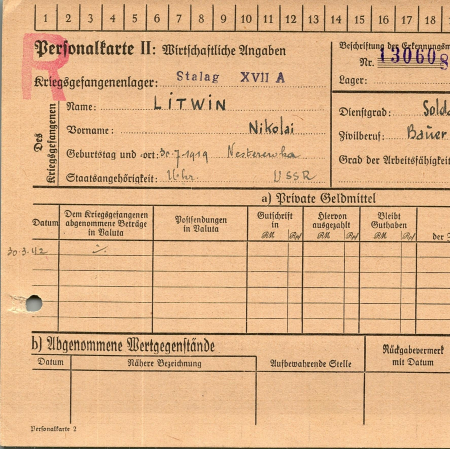 1 2 3 4 5 6 7 8 9 10 11 12 13 14 15 16 17 18
R
Personalkarte II: Wirtschaftliche Angaben
Beschriftung der Erkennungsm
Kriegsgefangenenlager: Stalag XVII A
Nr. 130608
Lager:
Des Kriegsgefangenen
Name: LITWIN
Vorname: Nikolai
Geburtstag und -ort: 30.7.1919
Staatsangehörigkeit: Ukr. USSR
Dienstgrad: Solda
Zivilberuf: Bauer
Grad der Arbeitsfähigkeit
a) Private Geldmittel
Datum
Dem Kriegsgefangenen abgenommene Beträge in Valuta
Postsendungen in Valuta
Gutschrift in
RM Rpf
Hiervon ausgezahlt
RM Rpf
Bleibt Guthaben
RM Rpf
der
30.3.42 -/.
b) Abgenommene Wertgegenstände
Datum
Nähere Bezeichnung
Aufbewahrende Stelle
Rückgabevermerk mit Datum
Personalkarte 2